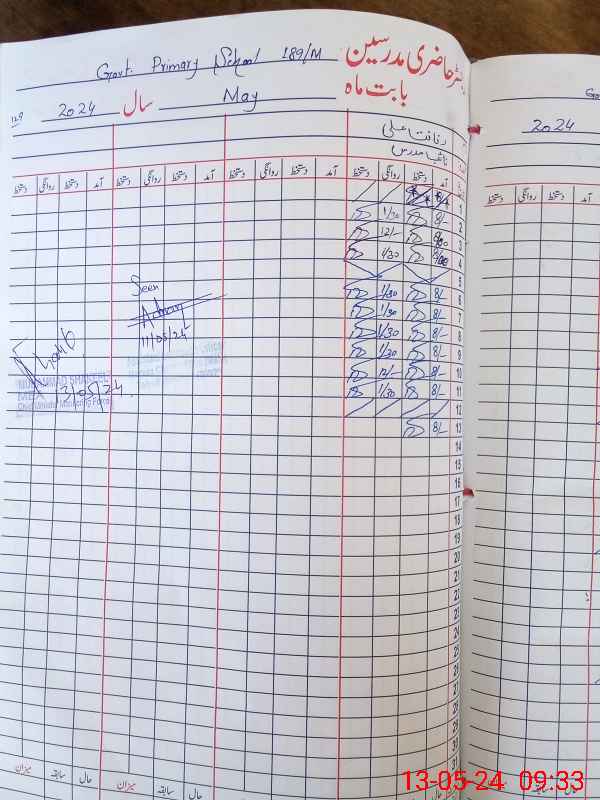 Govt. Primary School 189/M رجسٹر حاضری مدرسین
2024 سال May بابت ماہ
2024
رفاقت علی
نائب مدرس
آمد دستخط روانگی دستخط آمد دستخط روانگی دستخط آمد دستخط روانگی دستخط آمد دستخط روانگی دستخط
1
2 8/- 1/30
3 8/00 12/-
4 8/00 1/30
5
6 8/- 1/30
7 8/- 1/30
8 8/- 1/30
9 8/- 1/30
10 8/- 12/-
11 8/- 1/30
12
13 8/-
14
15
16
17
18
19
20
21
22
23
24
25
26
27
28
29
30
31
Seen
11/05/24
MUHAMMAD SHAKEEL
MEA
Chief Minister Monitoring Force
13/05/24
حال سابقہ میزان حال سابقہ میزان
13-05-24 09:33